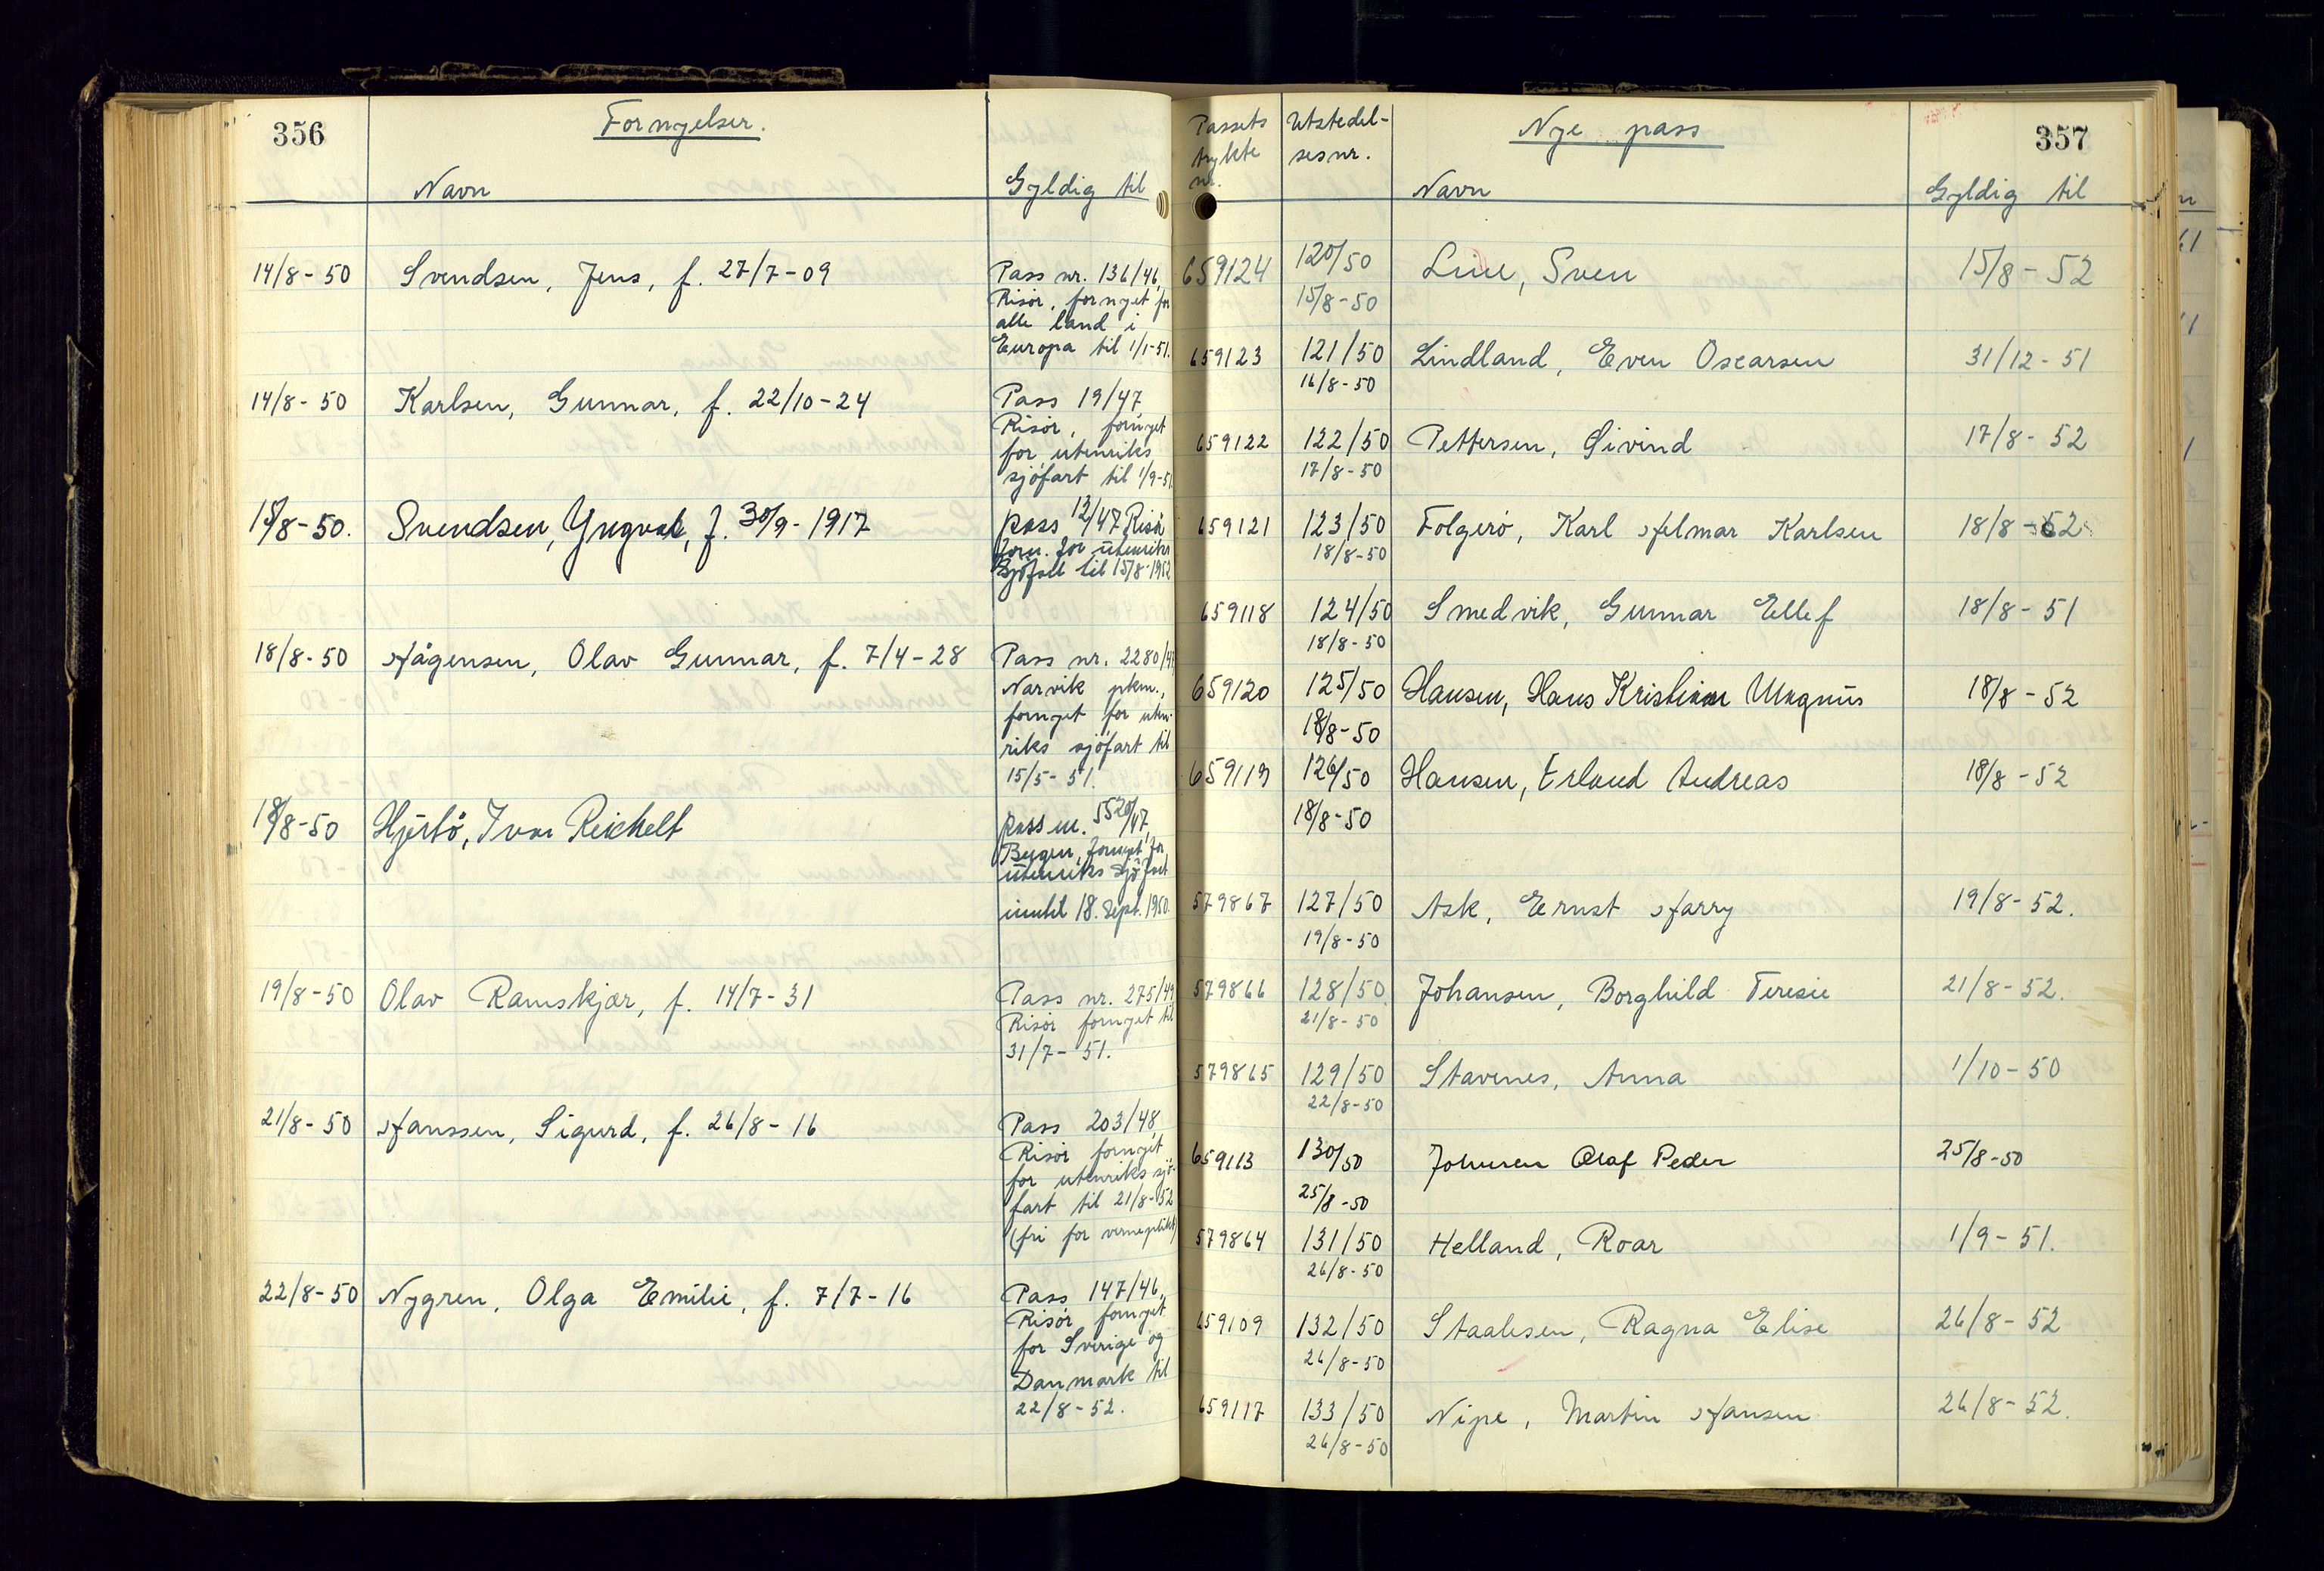 356
Fornyelser.
Navn
Gyldig til
14/8-50 Svendsen, Jens, f. 27/7-09
Pass nr. 136/46,
Risør, fornyet for
alle land i
Europa til 1/1-51.
14/8-50 Karlsen, Gunnar, f. 22/10-24
Pass 19/47
Risør, fornyet
for utenriks
sjøfart til 1/9-51
15/8-50. Svendsen, Yngvar, f. 30/9-1917
pass 12/47 Risør
forn. for utenriks
Sjøfart til 15/8-1952
18/8-50 Hågensen, Olav Gunnar, f. 7/4-28
Pass nr. 2280/47
Narvik pkm.,
fornyet for uten-
riks sjøfart til
15/5-51.
18/8-50 Hjertø, Ivar Reichelt
pass nr. 5520/47,
Bergen, fornyet for
utenriks sjøfart
inntil 18. Sept. 1950.
19/8-50 Olav Ramskjær, f. 14/7-31
Pass nr. 275/49
Risør fornyet til
31/7-51.
21/8-50 Hanssen, Sigurd, f. 26/8-16
Pass 203/48,
Risør fornyet
for utenriks sjø-
fart til 21/8-52
(fri for verneplikt)
22/8-50 Nygren, Olga Emilie, f. 7/7-16
Pass 147/46,
Risør fornyet
for Sverige og
Danmark til
22/8-52.
357
Passets
trykte
nr.
Utstedel-
sesnr.
Nye pass
Navn
Gyldig til
659124 120/50 Line, Sven 15/8-52
15/8-50
659123 121/50 Lindland, Even Oscarsen 31/12-51
16/8-50
659122 122/50 Pettersen, Øivind 17/8-52
17/8-50
659121 123/50 Folgerø, Karl Helmar Karlsen 18/8-52
18/8-50
659118 124/50 Smedvik, Gunnar Ellef 18/8-51
18/8-50
659120 125/50 Hansen, Hans Kristian Magnus 18/8-52
18/8-50
659119 126/50 Hansen, Erland Andreas 18/8-52
18/8-50
579867 127/50 Ask, Ernst Harry 19/8-52.
19/8-50
579866 128/50 Johansen, Borghild Teresie 21/8-52.
21/8-50
579865 129/50 Stavenes, Anna 1/10-50
22/8-50
659113 130/50 Johnsen Olaf Peder 25/8-50
25/8-50
579864 131/50 Helland, Roar 1/9-51.
26/8-50
659109 132/50 Staalesen, Ragna Elise 26/8-52
26/8-50
659117 133/50 Nipe, Martin Hansen 26/8-52.
26/8-50